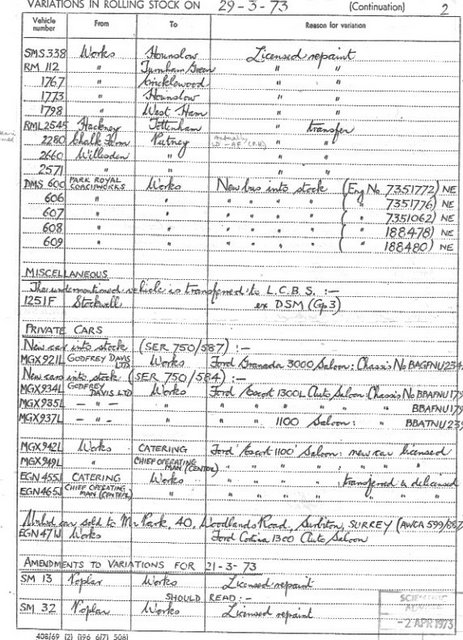 VARIATIONS IN ROLLING STOCK ON 29-3-73 (Continuation) 2
Vehicle number From To Reason for variation
SMS 338 Works Hounslow Licensed repaint
RM 112 " Turnham Green " "
1767 " Cricklewood " "
1773 " Hounslow " "
1798 " West Ham " "
RML 2545 Hackney Tottenham " transfer
2280 Chalk Farm Putney " "
2660 Willesden " " "
2571 " " " "
DMS 600 PARK ROYAL COACHWORKS Works New bus into stock (Eng No 7351772) NE
606 " " " " " " ( " 7351776) NE
607 " " " " " " ( " 7351062) NE
608 " " " " " " ( " 188478) NE
609 " " " " " " ( " 188480) NE
MISCELLANEOUS
The undermentioned vehicle is transferred to L.C.B.S. :-
1251F Stockwell ex DSM (Gp3)
PRIVATE CARS
New car into stock (SER 750/587) :-
MGX921L GODFREY DAVIS LTD Works Ford Granada 3000 Saloon: Chassis No BAGFNU234
New cars into stock (SER 750/584) :-
MGX934L GODFREY DAVIS LTD Works Ford Escort 1300L Auto Saloon Chassis No BBAFNU179
MGX935L - " - " " " " " " BBAFNU179
MGX937L - " - " " " 1100 Saloon: " BBATNU239
MGX942L Works CATERING Ford 'Escort 1100' Saloon: new car licensed
MGX949L " CHIEF OPERATING MAN (CENTRAL) " " " " " "
EGN455J CATERING Works " " " transferred & delicensed
EGN465J CHIEF OPERATING MAN (CENTRAL) " " " " " "
car sold to Mr Park, 40, Woodlands Road, Surbiton, SURREY (AWCA 599/587
EGN47W Works Ford Cortina 1300 Auto Saloon
AMENDMENTS TO VARIATIONS FOR 21-3-73
SM 13 Poplar Works Licensed repaint
SHOULD READ :-
SM 32 Poplar Works Licensed repaint
-2 APR 1973